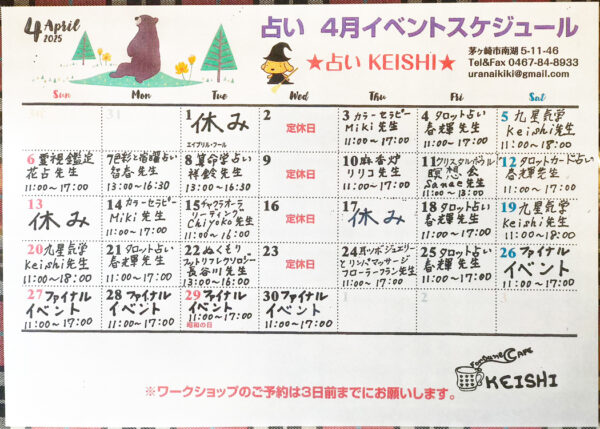 4 April
2025
占い 4月イベントスケジュール
★占い KEISHI★
茅ヶ崎市南湖 5-11-46
Tel&Fax 0467-84-8933
uranaikiki@gmail.com
Sun Mon Tue Wed Thu Fri Sat
30 31
1 休み
エイプリル・フール
2
定休日
3 カラーセラピー
Miki 先生
11:00〜17:00
4 タロット占い
春輝 先生
11:00〜17:00
5 九星気学
Keishi先生
11:00〜18:00
6 霊視鑑定
花占 先生
11:00〜17:00
7 色彩と宿曜占い
智春 先生
13:00〜16:30
8 算命学占い
祥鈴 先生
13:00〜16:30
9
定休日
10 麻雀灼
リリコ 先生
11:00〜17:00
11 クリスタルボウル
瞑想会
Sanae 先生
11:00〜13:00
12 タロットカード占い
春輝先生
11:00〜17:00
13
休み
14 カラーセラピー
Miki 先生
11:00〜17:00
15 チャクラオーラ
リーディング
Chiyoko 先生
11:00〜16:00
16
定休日
17
休み
18 タロット占い
春輝 先生
11:00〜17:00
19 九星気学
Keishi先生
11:00〜18:00
20 九星気学
Keishi先生
11:00〜18:00
21 タロット占い
春輝 先生
11:00〜17:00
22 ぬくもり
フットリフレクソロジー
長谷川 先生
13:00〜16:00
23
定休日
24 耳ツボジュエリー
とリンパマッサージ
フローラーフラン先生
11:00〜17:00
25 タロット占い
春輝 先生
11:00〜17:00
26 ファイナル
イベント
11:00〜17:00
27 ファイナル
イベント
11:00〜17:00
28 ファイナル
イベント
11:00〜17:00
29 ファイナル
イベント
11:00〜17:00
昭和の日
30 ファイナル
イベント
11:00〜17:00
1 2 3
Fortune Cafe
KEISHI
※ワークショップのご予約は3日前までにお願いします。